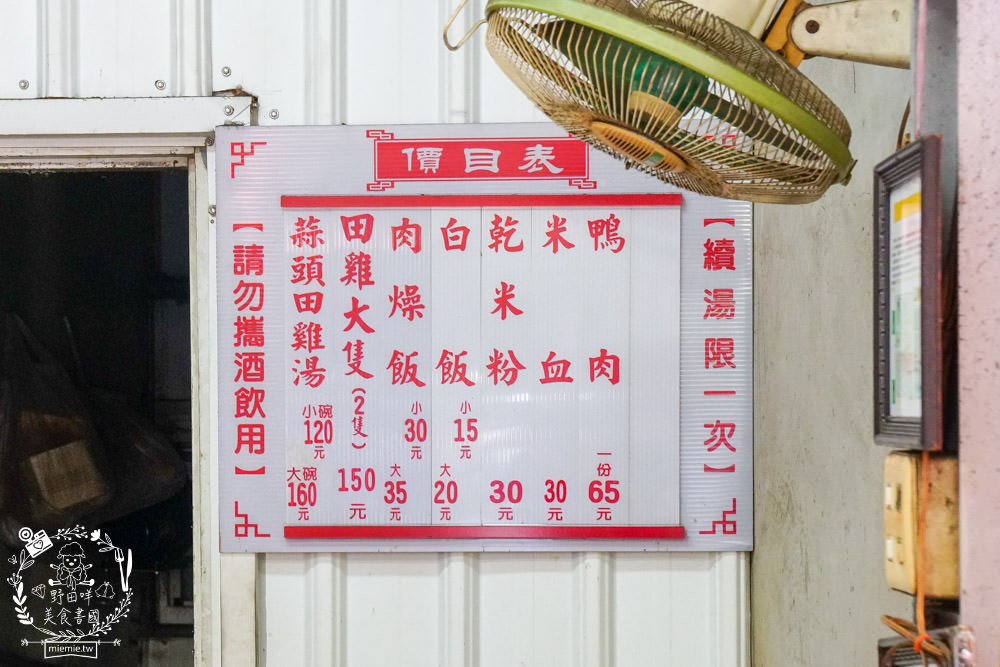 價目表
【續湯限一次】
鴨肉 一份65元
米血 30元
乾米粉 30元
白飯 小15元 大20元
肉燥飯 小30元 大35元
田雞大隻(2隻) 150元
蒜頭田雞湯 小碗120元 大碗160元
【請勿攜酒飲用】
野田咩
美食書國
miemie.tw